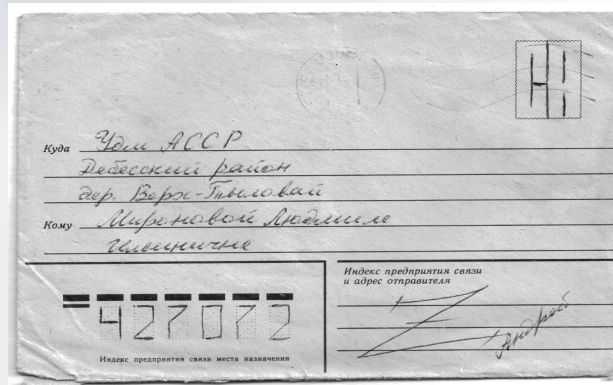 Н1
Куда Удм АССР
Дебесский район
дер. Верх-Тыловай
Кому Мироновой Людмиле
Ильиничне
Индекс предприятия связи
и адрес отправителя
Андрей
427072
Индекс предприятия связи места назначения